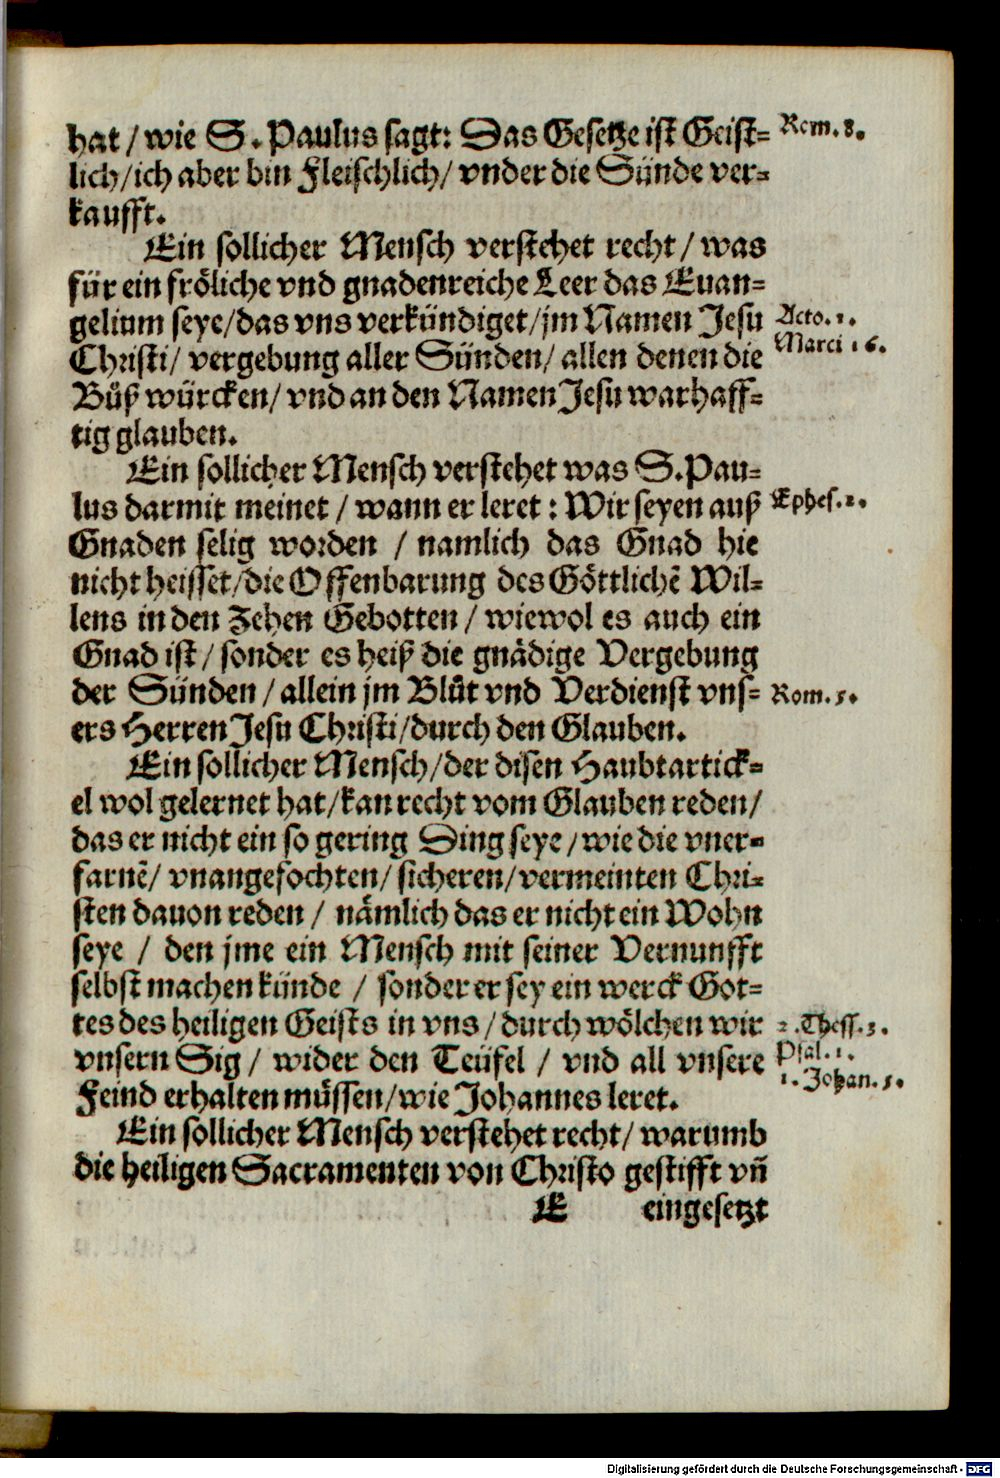 hat / wie S. Paulus sagt: Das Gesetze ist Geist= Rom. 8.
lich/ich aber bin Fleischlich/ vnder die Sünde ver=
kaufft.
Ein sollicher Mensch verstehet recht/ was
für ein fröliche vnd gnadenreiche Leer das Euan=
gelium seye/das vns verkündiget/jm Namen Jesu Acto. 1.
Christi/ vergebung aller Sünden/ allen denen die Marci 16.
Bůß würcken/ vnd an den Namen Jesu warhaff=
tig glauben.
Ein sollicher Mensch verstehet was S. Pau=
lus darmit meinet / wann er leret: Wir seyen auß Ephes. 2.
Gnaden selig worden / namlich das Gnad hie
nicht heisset/die Offenbarung des Göttlichẽ Wil=
lens in den Zehen Gebotten / wiewol es auch ein
Gnad ist / sonder es heiß die gnädige Vergebung
der Sünden / allein jm Blůt vnd Verdienst vns= Rom. 5.
ers Herren Jesu Christi/durch den Glauben.
Ein sollicher Mensch/der disen Haubtartick=
el wol gelernet hat/kan recht vom Glauben reden/
das er nicht ein so gering Ding seye / wie die vner=
farnẽ/ vnangefochten/ sicheren/vermeinten Chri=
sten dauon reden / nämlich das er nicht ein Wohn
seye / den jme ein Mensch mit seiner Vernunfft
selbst machen künde / sonder er sey ein werck Got=
tes des heiligen Geists in vns / durch wölchen wir 2. Thess. 3.
vnsern Sig / wider den Teüfel / vnd all vnsere Psal. 1.
Feind erhalten müssen/wie Johannes leret. 1. Johan. 5.
Ein sollicher Mensch verstehet recht/ warumb
die heiligen Sacramenten von Christo gestifft vñ
E eingesetzt
Digitalisierung gefördert durch die Deutsche Forschungsgemeinschaft - DFG